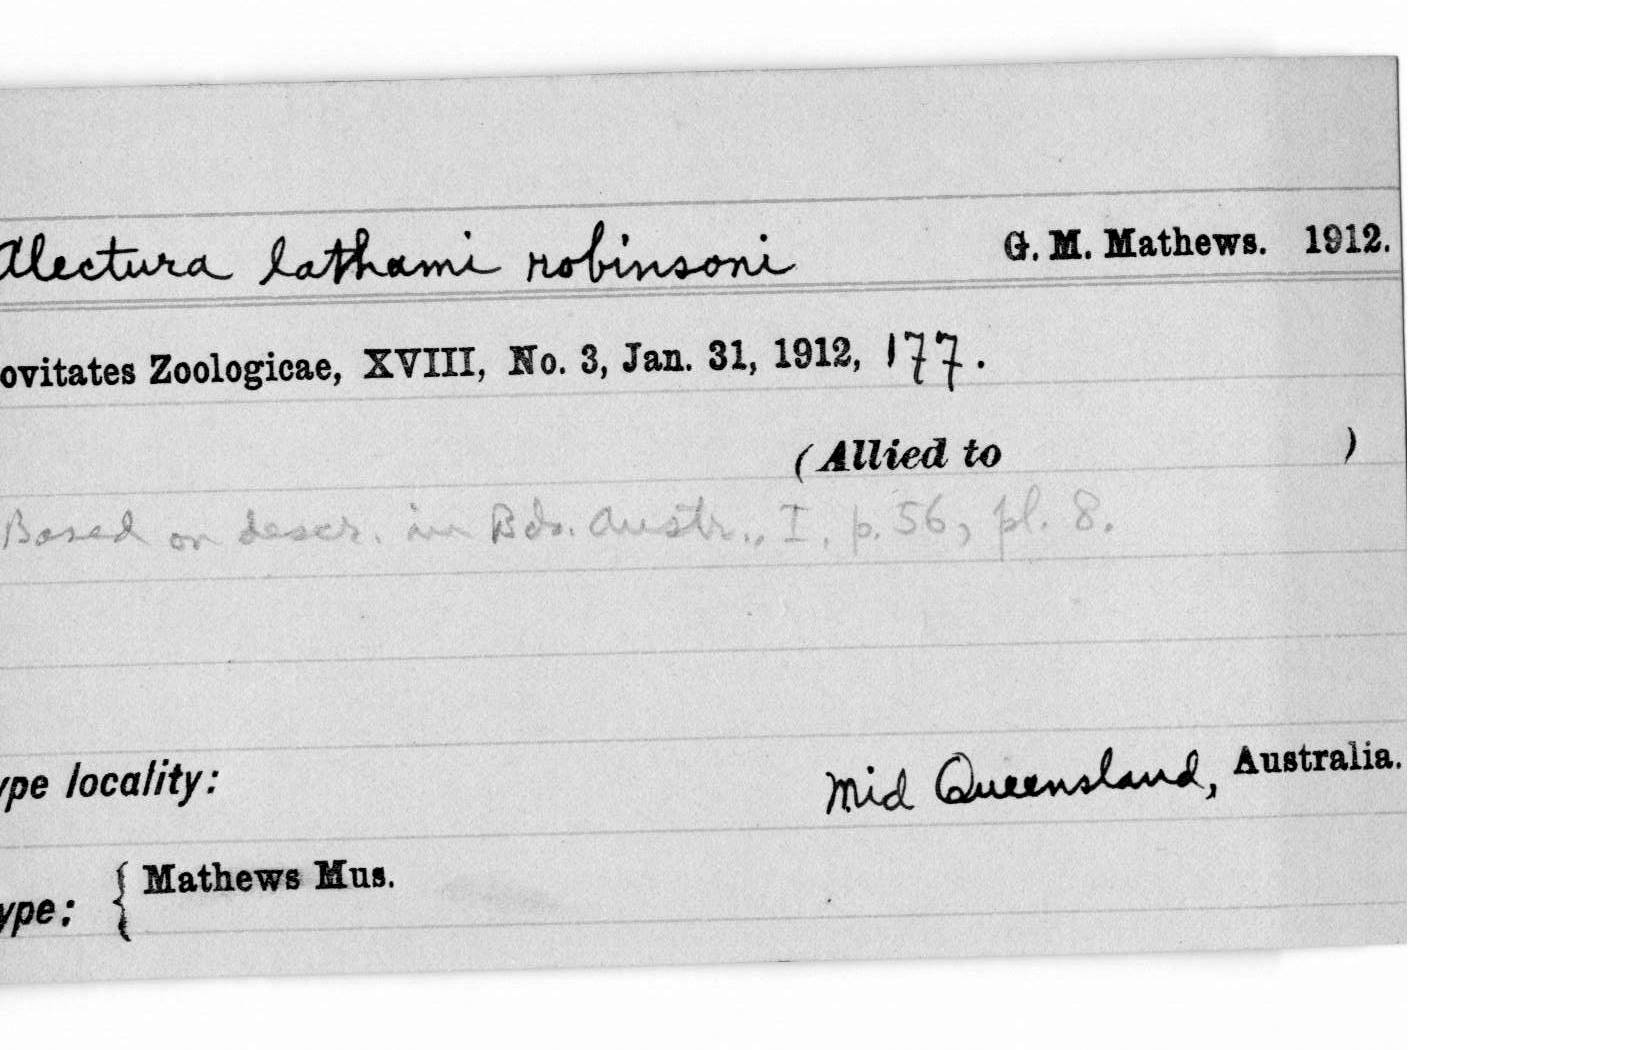 Alectura lathami robinsoni G. M. Mathews. 1912.
ovitates Zoologicae, XVIII, No. 3, Jan. 31, 1912, 177.
(Allied to )
Based on descr. in Bds. Austr., I, p. 56, pl. 8.
ype locality: Mid Queensland, Australia.
ype: { Mathews Mus.